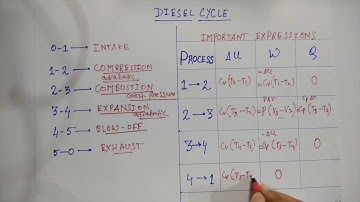 DIESEL CYCLE
0-1 → INTAKE
1-2 → COMPRESSION
adiabatic
2-3 → COMBUSTION
const. pressure
3-4 → EXPANSION
adiabatic
4-5 → BLOW-OFF
5-0 → EXHAUST
IMPORTANT EXPRESSIONS
PROCESS ΔU W Q
1→2 Cv(T2-T1) -ΔU Cv(T1-T2) 0
2→3 Cv(T3-T2) PΔV =P(V3-V2) CpΔT =Cp(T3-T2)
3→4 Cv(T4-T3) -ΔU =Cv(T3-T4) 0
4→1 0